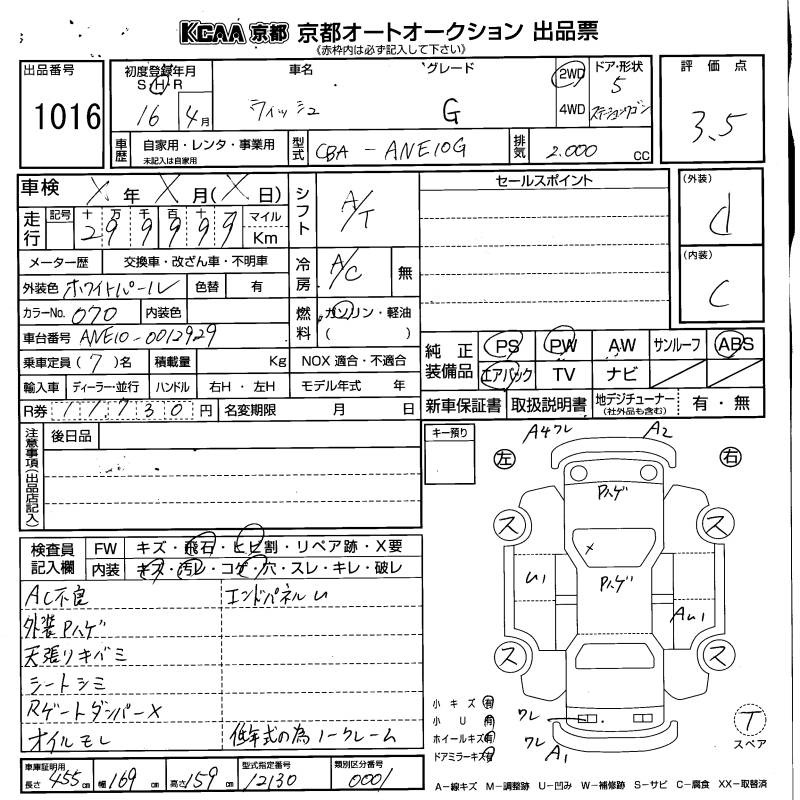 KCAA 京都 京都オートオークション 出品票
《赤枠内は必ず記入して下さい》
出品番号
1016
初度登録年月
S H R
16 4月
車名
ウィッシュ
グレード
G
2WD
4WD
ドア・形状
5
ステーションワゴン
評価点
3.5
車歴 自家用・レンタ・事業用
未記入は自家用
型式 CBA - ANE10G
排気 2.000 cc
車検 X年 X月(X日)
走行 記号 十 万 千 百 十 一 マイル
299997 Km
メーター歴 交換車・改ざん車・不明車
外装色 ホワイトパール 色替 有
カラーNo. 070 内装色
車台番号 ANE10-0012929
乗車定員 (7)名 積載量 Kg NOX 適合・不適合
輸入車 ディーラー・並行 ハンドル 右H・左H モデル年式 年
R券 11730円 名変期限 月 日
シフト A/T
冷房 A/C 無
燃料 ガソリン・軽油
( )
セールスポイント
(外装)
d
(内装)
C
純正装備品 PS PW AW サンルーフ ABS
エアバック TV ナビ
新車保証書 取扱説明書 地デジチューナー 有・無
(社外品も含む)
注意事項(出品店記入)
後日品
キー預り
検査員記入欄 FW キズ・飛石・ヒビ割・リペア跡・X要
内装 キズ・汚レ・コゲ・穴・スレ・キレ・破レ
AC不良 エンドパネルU
外装Pハゲ
天張リキバミ
シートシミ
RゲートダンパーX
オイルモレ 低年式の為ノークレーム
車庫証明用 長さ 455cm 幅 169cm 高さ 159cm
型式指定番号 12130
類別区分番号 0001
A4 ワレ A2
左 右
Pハゲ
ス ス
X
U1 Pハゲ AU1
ス ス
小キズ 有
小U 有
ホイールキズ 有
ドアミラーキズ 有
ワレ
ワレ A1
T
スペア
A-線キズ M-調整跡 U-凹み W-補修跡 S-サビ C-腐食 XX-取替済